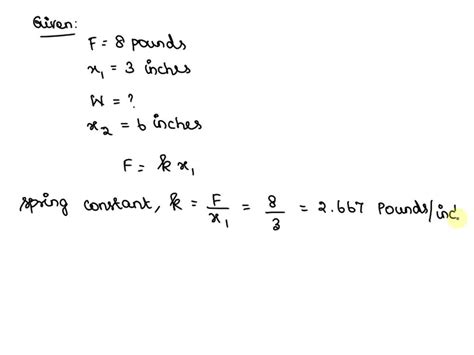 Given:
F = 8 pounds
x₁ = 3 inches
W = ?
x₂ = 6 inches
F = k x₁
spring constant, k = F/x₁ = 8/3 = 2.667 Pounds/inc